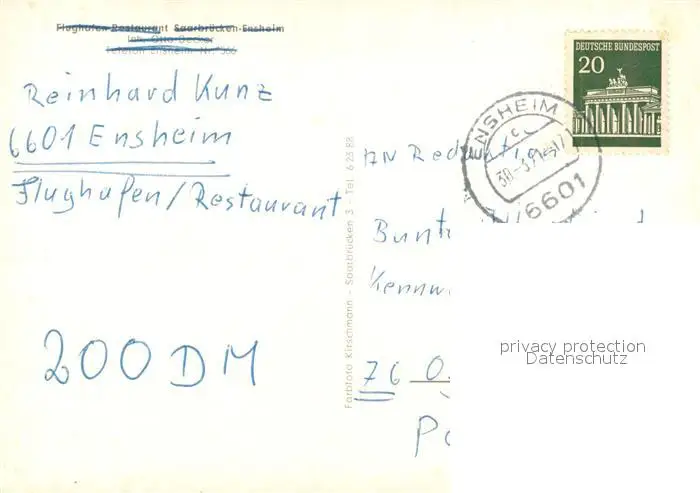 Flughafen-Restaurant Saarbrücken-Ensheim
Inh. Otto Becker
Telefon Ensheim Nr. 366
Reinhard Kunz
6601 Ensheim
Flughafen/Restaurant
200 DM
Farbfoto Kirschmann - Saarbrücken 3 - Tel. 6 25 88
DEUTSCHE BUNDESPOST
20
ENSHEIM
c
6601
AN Redaktion
Bunt
Kennw
76 O
privacy protection
Datenschutz